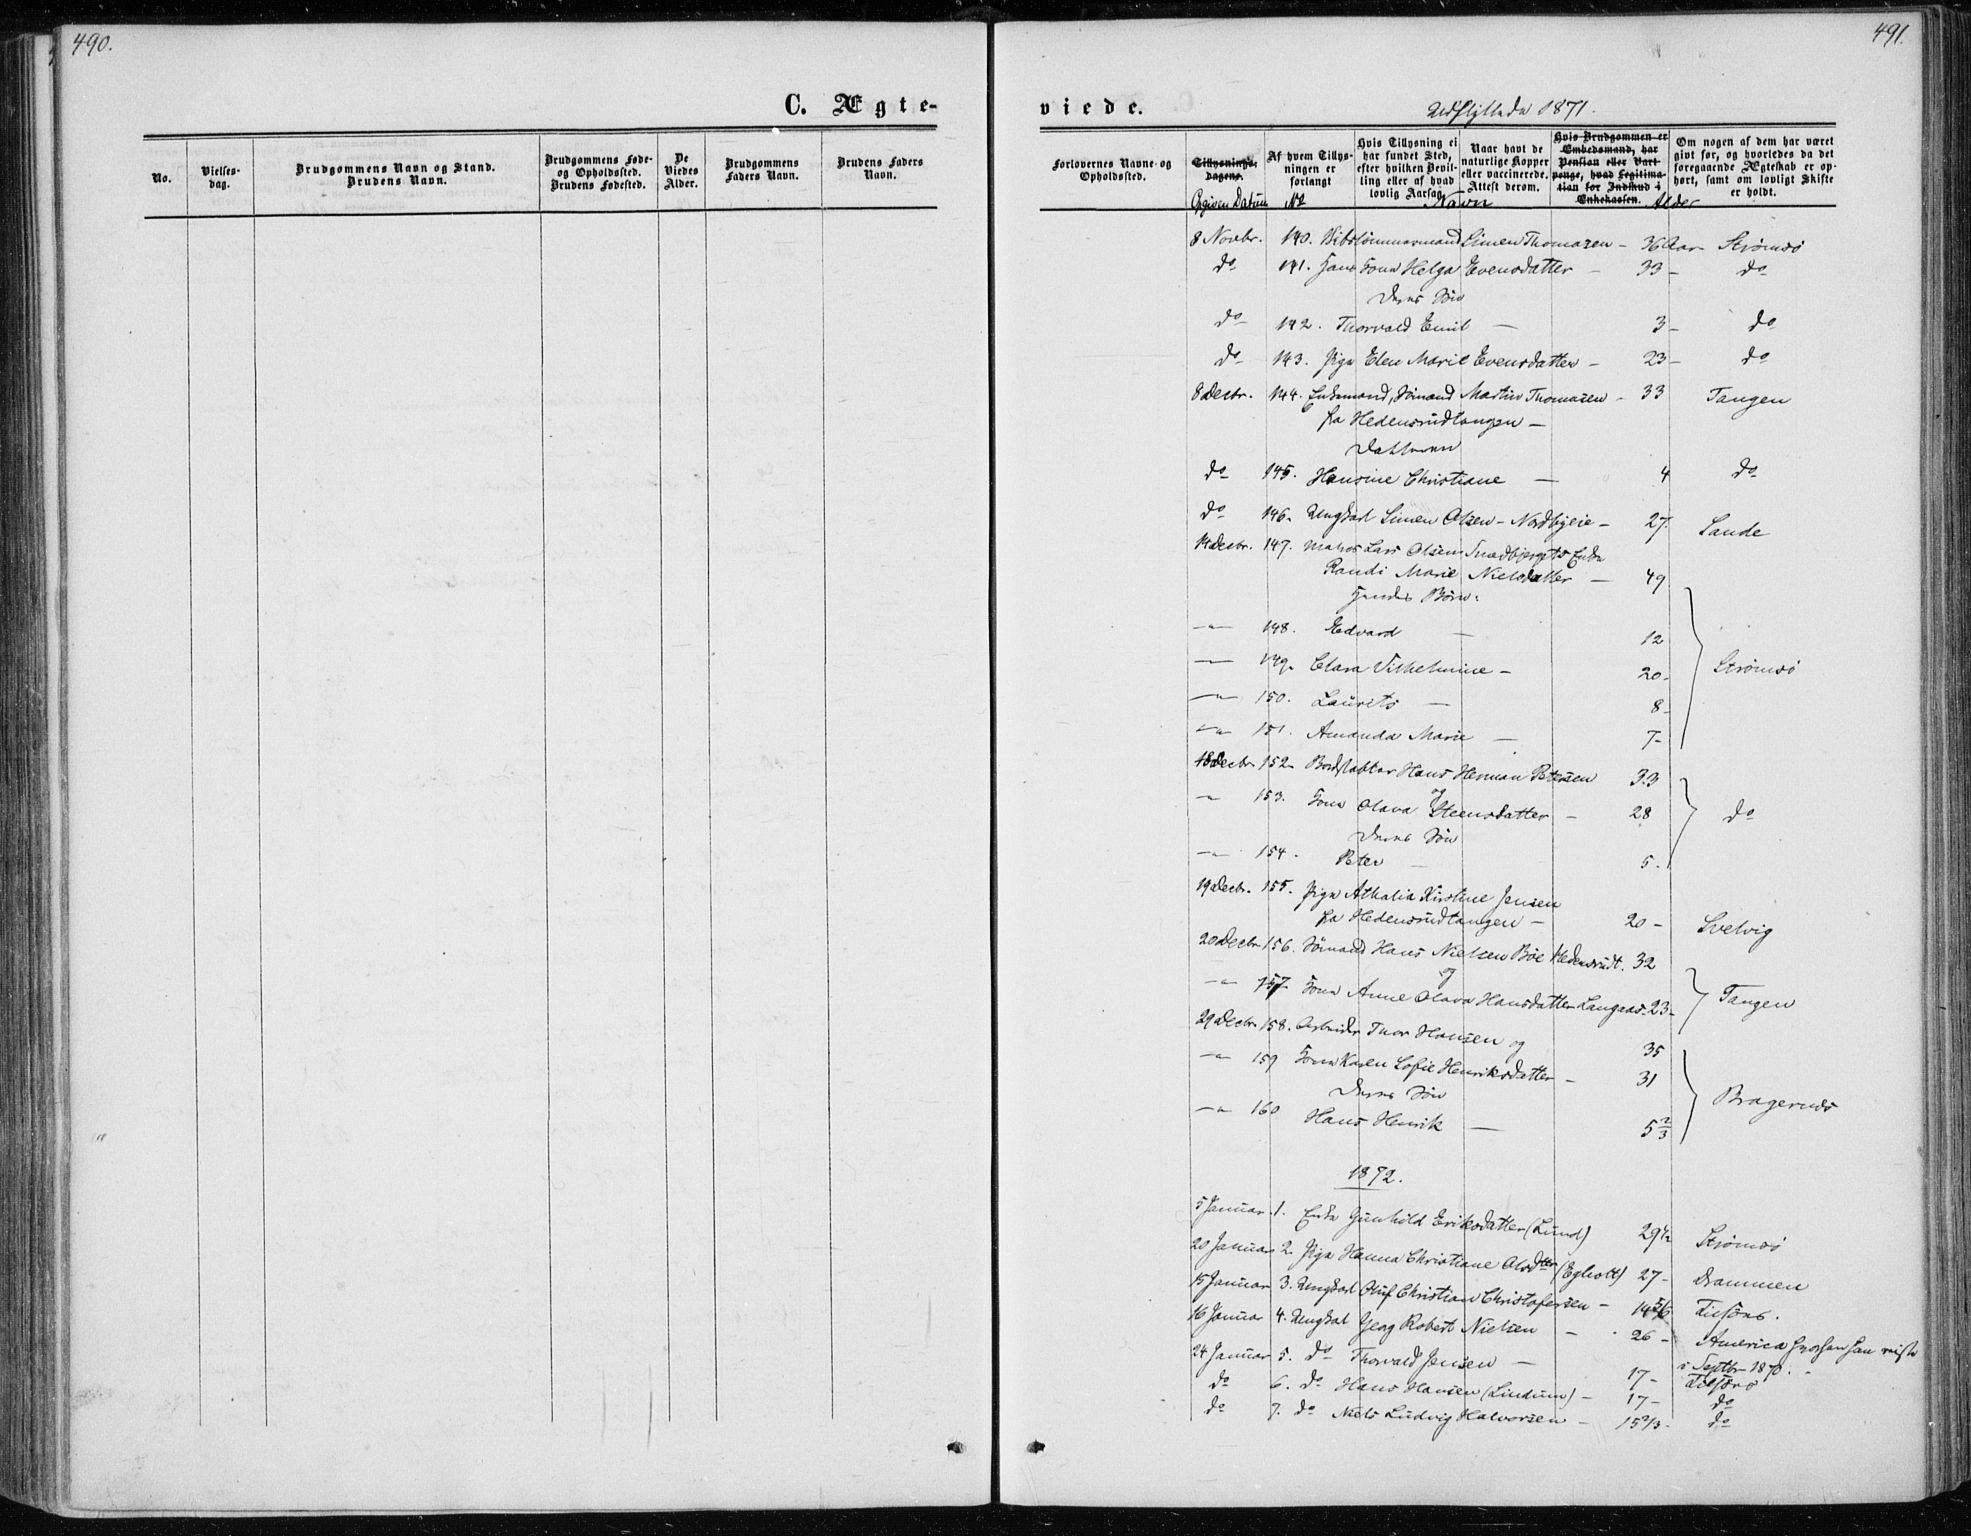 490.
C. Ægte-
No.
Vielses-
dag.
Brudgommens Navn og Stand.
Brudens Navn.
Brudgommens Føde-
og Opholdssted.
Brudens Fødested.
De
Viedes
Alder.
Brudgommens
Faders Navn.
Brudens Faders
Navn.
491.
viede.
Udflyttede 1871.
Forlovernes Navne og
Opholdssted.
Tillysnings-
dagene.
Af hvem Tillys-
ningen er
forlangt
Hvis Tillysning ei
har fundet Sted,
efter hvilken Bevil-
ling eller af hvad
lovlig Aarsag.
Naar havt de
naturlige Kopper
eller vaccinerede.
Attest derom.
Hvis Brudgommen er
Embedsmand, har
Pension eller Vart-
penge, hvad Legitima-
tion for Indskud i
Enkekassen.
Om nogen af dem har været
givt før, og hvorledes da det
foregaaende Ægteskab er op-
hørt, samt om lovligt Skifte
er holdt.
Opgiven Datum No Navn Alder
8 Novbr. 140. Simen Thomasen - 36 Aar - Strømsö
do 141. Hans Kone Helga Evensdatter - 33 - do
Deres Sön
do 142. Thorvald Emil - 3 - do
do 143. Pige Elen Marie Evensdatter - 23 - do
8 Decbr. 144. Enkemand, Sömand Martin Thomasen - 33 Tangen
fra Hedensrudtangen -
Datteren
do 145. Hansine Christiane - 4 do
do 146. Ungkarl Simen Olsen - Nordbyeie - 27. Sande
14 Decbr. 147. Matros Lars Olsen Enke
Randi Marie Nielsdatter - 49
Hendes Börn:
-"- 148. Edvard - 12
-"- 149. Clara Vilhelmine - 20 - Strömsö
-"- 150. Laurits - 8 -
-"- 151. Amanda Marie - 7 -
18 Decbr. 152. Bordstabler Hans Herman Petersen 33
og
-"- 153. Kone Olava Steensdatter - 28 do
Deres Sön
-"- 154. Peter - 5.
19 Decbr. 155. Pige Athalia Kirstine Jensen
fra Hedensrudtangen - 20 - Svelvig
20 Decbr. 156. Sömand Hans Nielsen Böe Hedensrudt. 32
og
-"- 157. Kone Anne Olava Hansdatter Langaas - 23 - Tangen
29 Decbr. 158. Arbeider Thor Hansen og 35
-"- 159 Kone Karen Sofie Henriksdatter - 31
Deres Sön Bragernæs
-"- 160 Hans Henrik - 5 2/3
1872.
5 Januar 1. Enke Gunhild Eriksdatter (Lund) 29 1/2 Strömsö
20 Januar 2. Pige Hanna Christiane Olsdtter (Egholt) 27 - Drammen
15 Januar 3. Ungkarl Oluf Christian Christofersen - 14 5/6 Tilsöes.
16 Januar 4. Ungkarl Georg Robert Nielsen - 26 - America hvorhen han reiste
i Septbr 1870.
24 Januar 5. do Thorvald Jensen - 17 - Tilsöes
do 6. do Hans Hansen (Lindum) - 17 - do
do 7. do Niels Ludvig Halvorsen - 15 2/3 - do